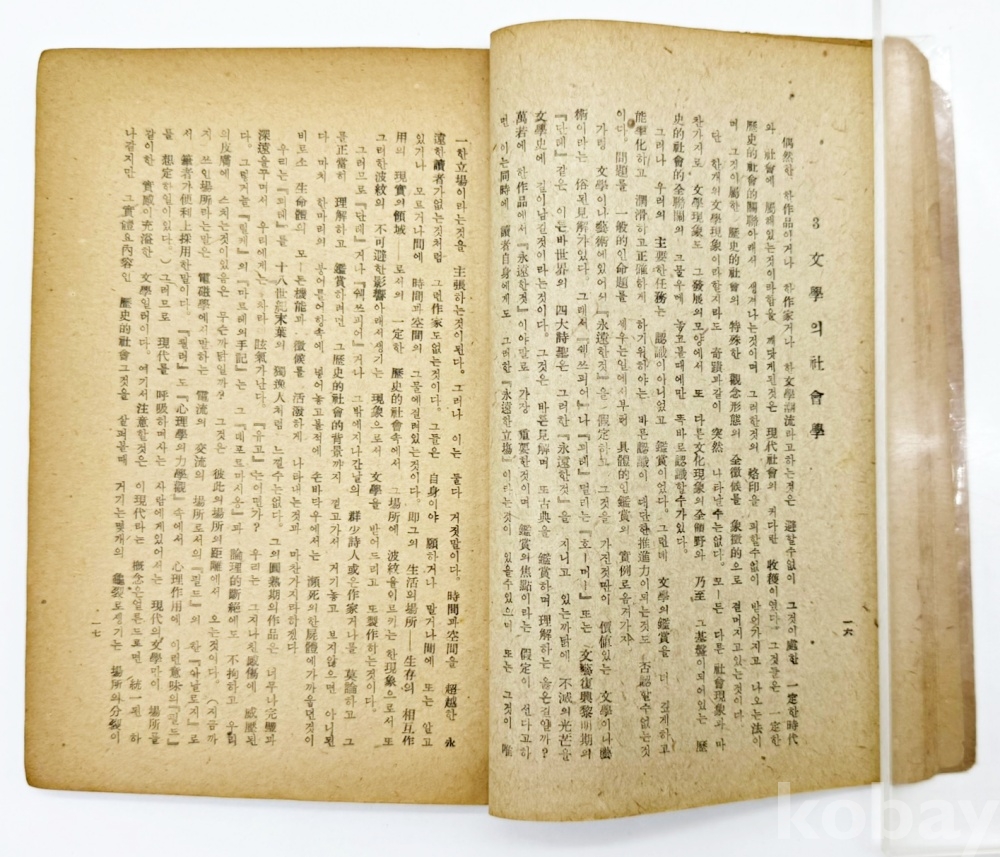 3 文學의社會學
偶然한 한作品이거나 한作家거나 한文學潮流라고하는것은 避할수없이 그것이處한 一定한時代
와 社會에 屬해있는것이라함을 깨닷게된것은 現代社會의 커다란 收穫이였다. 그것들은 一定한
歷史的社會的關聯아래서 생겨나는것이며 그러한것의 烙印을 피할수없이 받어가지고 나오는法이
며 그것이屬한 歷史的社會의 特殊한 觀念形態의 全徵候를 象徵的으로 걸머지고있는것이다
단 한개의文學現象이라할지라도 奇蹟과같이 突然 나타날수는없다. 모ー든 다른 社會現象과 마
찬가지로 文學現象도 그發展의모양에서 또 다른文化現象의全領野와 乃至 그基盤이되어있는 歷
史的社會的全聯關의 그물우에 놓고볼때에만 똑바로認識할수가있다.
그러나 우리의 主要한任務는 認識이아니었고 鑑賞이었다. 그런데 文學의鑑賞을 더 쉽게하고
能率化하고 潤滑하고正確하게 하기위하야는 바른認識이 대단한推進力이되는것도 否認할수없는것
이다. 問題를 一般的인命題를 세우는일에서부터 具體的인鑑賞의 實例로옴겨가자
가령 文學이나藝術에있어서 『永遠한것』을 假定하고 그것을 가진것만이 價値있는 文學이나藝
術이라는 俗된見解가있다. 그래서『쉑쓰피어』나『떤테』는『호ー머ー』또는 文藝復興黎明期의
『단테』같은 이른바世界의 四大詩聖은 그러한『永遠한것』을 지니고 있는까닭에 不滅의光芒을
文學史에 길이남길것이라는것이다. 그것은 바른見解며 또古典을 鑑賞하며理解하는 옳은길일까?
萬若에 한作品에서『永遠한것』이야말로 가장 重要한것이며 鑑賞의焦點이라는 假定이 선다고하
면 이는同時에 讀者自身에게도 그러한『永遠한立場』이라는것이 있을수있으며 또는 그것이 唯
一六
一한立場이라는것을 主張하는것이된다. 그러나 이는 둘다 거짓말이다. 時間과空間을 超越한 永
遠한讀者가없는것처럼 그런作家도없는것이다. 그들은 自身이야 願하거나 말거나間에 또는 알고
있거나 모르거나間에 時間과空間의 그물에걸려있는것이다. 即그의 生活의場所—生存의 相互作
用의 現實의領域—로서의 一定한 歷史的社會속에서 그場所에 波紋을이르키는 한現象으로서 또
그러한波紋의 不可避한影響아래서생기는 現象으로서 文學을 받어드리고 또製作하는것이다.
그러므로『단테』거나『쉑쓰피어』거나 그밖에지나간날의 群少詩人或은作家거나를 莫論하고 그
를正當히 理解하고 鑑賞하려면 그歷史的社會的背景까지 걸고가서 거기놓고 보지않으면 아니된
다. 마치 한마리의 붕어를어항속에 넣어놓고볼적에 손바닥우에서는 瀕死의한屍體에가까웁던것이
비로소 生命體의 모ー든機能과 徵候를 活潑하게 나타내는것과 마찬가지라하겠다
우리는『꾀테』를 十八世紀末葉의 獨逸人처럼 느낄수는없다. 그의圓熟期의作品은 너무나完璧과
深遠을꾸며서 우리에게는차라리 眩氣가난다.『유고』는어떤가? 우리는 그지나친感傷에 威壓된
다. 그런거늘『릴케』의『마르테의手記』는『데포르마시옹』과 論理的斷絕에도 不拘하고 우리
의皮膚에 스치는것이있음은 무슨까닭일까? 그것은 彼此의場所의距離에서 오는것이다.
지 쓰인場所라는말은 電磁學에서말하는 電流의 交流의 場所로서의『필드』의 한『아날로지』로
서 筆者가便利上採用한말이다.『쾰러』도『心理學의力學觀』속에서 心理作用에 이런意味의『필드』
를 想定한일이있다.)그러므로 現代를 呼吸하며사는 사람에게있어서는 現代의文學만이 場所를
같이한 實感이充溢한 文學일러이다. 여기서注意할것은 이現代라는 槪念은얼른보면 統一된 하
나같지만 그實體요內容인 歷史的社會그것을 살펴볼때 거기는몇개의 龜裂로생기는 場所의分裂이
一七
kobay